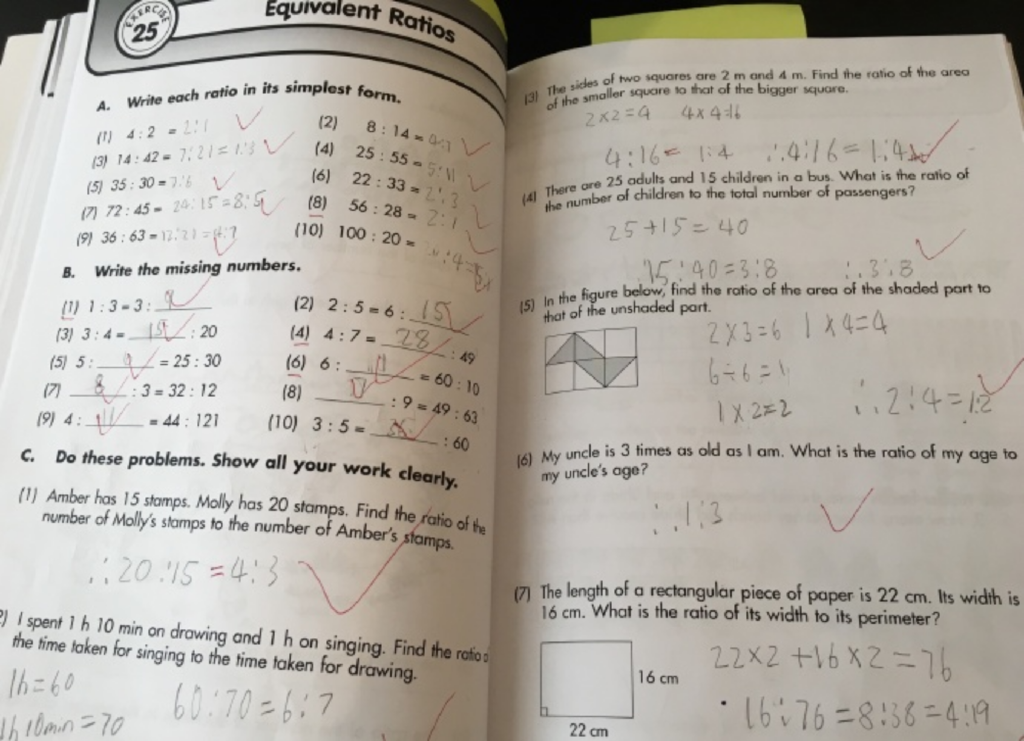 EXERCISE 25
Equivalent Ratios
A. Write each ratio in its simplest form.
(1) 4 : 2 = 2:1
(2) 8 : 14 = 4:7
(3) 14 : 42 = 7:21 = 1:3
(4) 25 : 55 = 5:11
(5) 35 : 30 = 7:6
(6) 22 : 33 = 2:3
(7) 72 : 45 = 24:15 = 8:5
(8) 56 : 28 = 2:1
(9) 36 : 63 = 12:21 = 4:7
(10) 100 : 20 =
B. Write the missing numbers.
(1) 1 : 3 = 3 : 9
(2) 2 : 5 = 6 : 15
(3) 3 : 4 = 15 : 20
(4) 4 : 7 = 28 : 49
(5) 5 : = 25 : 30
(6) 6 : = 60 : 10
(7) 8 : 3 = 32 : 12
(8) : 9 = 49 : 63
(9) 4 : 11 = 44 : 121
(10) 3 : 5 = : 60
C. Do these problems. Show all your work clearly.
(1) Amber has 15 stamps. Molly has 20 stamps. Find the ratio of the
number of Molly's stamps to the number of Amber's stamps.
∴20:15 = 4:3
I spent 1 h 10 min on drawing and 1 h on singing. Find the ratio
the time taken for singing to the time taken for drawing.
1h=60
60:70=6:7
1h 10min=70
(3) The sides of two squares are 2 m and 4 m. Find the ratio of the area
of the smaller square to that of the bigger square.
2×2=4 4×4=16
4:16= 1:4 ∴4:16=1:4
(4) There are 25 adults and 15 children in a bus. What is the ratio of
the number of children to the total number of passengers?
25+15=40
15:40=3:8 ∴3:8
(5) In the figure below, find the ratio of the area of the shaded part to
that of the unshaded part.
2×3=6 1×4=4
6÷6=1
1×2=2 ∴2:4=1:2
(6) My uncle is 3 times as old as I am. What is the ratio of my age to
my uncle's age?
∴1:3
(7) The length of a rectangular piece of paper is 22 cm. Its width is
16 cm. What is the ratio of its width to its perimeter?
22×2+16×2=76
16 cm
16:76=8:38=4:19
22 cm